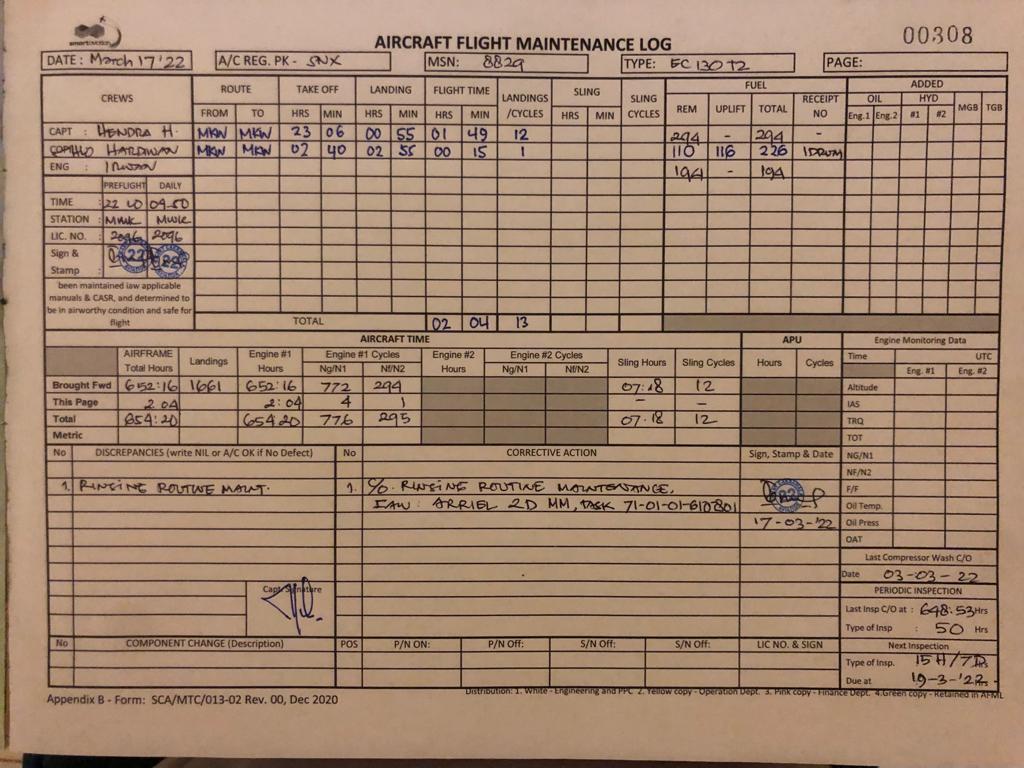 smartaviation
AIRCRAFT FLIGHT MAINTENANCE LOG
00308
DATE: March 17'22 A/C REG. PK - SNX MSN: 8829 TYPE: EC 130 T2 PAGE:
CREWS ROUTE TAKE OFF LANDING FLIGHT TIME LANDINGS /CYCLES SLING SLING CYCLES FUEL ADDED
FROM TO HRS MIN HRS MIN HRS MIN HRS MIN REM UPLIFT TOTAL RECEIPT NO OIL HYD MGB TGB
Eng.1 Eng.2 #1 #2
CAPT : HENDRA H. MKW MKW 23 06 00 55 01 49 12 294 - 294 -
HARDIWAN MKW MKW 02 40 02 55 00 15 1 110 116 226 1DRUM
ENG : IRWAN 194 - 194
PREFLIGHT DAILY
TIME : 22 40 04.50
STATION : MWK MWK
LIC. NO. : 2096 2096
Sign & Stamp :
been maintained iaw applicable
manuals & CASR, and determined to
be in airworthy condition and safe for
flight
TOTAL 02 04 13
AIRCRAFT TIME APU Engine Monitoring Data
AIRFRAME Total Hours Landings Engine #1 Hours Engine #1 Cycles Engine #2 Hours Engine #2 Cycles Sling Hours Sling Cycles Hours Cycles Time UTC
Ng/N1 Nf/N2 Ng/N1 Nf/N2 Eng. #1 Eng. #2
Brought Fwd 652:16 1661 652:16 772 294 07:18 12 Altitude
This Page 2.04 2:04 4 1 - - IAS
Total 654:20 654:20 776 295 07.18 12 TRQ
Metric TOT
No DISCREPANCIES (write NIL or A/C OK if No Defect) No CORRECTIVE ACTION Sign, Stamp & Date NG/N1
NF/N2
1. RINSING ROUTINE MAINT. 1. C/O. RINSING ROUTINE MAINTENANCE, F/F
IAW : ARRIEL 2D MM, TASK 71-01-01-610801 Oil Temp.
17-03-'22 Oil Press
OAT
Last Compressor Wash C/O
Date 03-03-22
PERIODIC INSPECTION
Capt. Signature
Last Insp C/O at : 648:53 Hrs
Type of Insp : 50 Hrs
No COMPONENT CHANGE (Description) POS P/N ON: P/N Off: S/N Off: S/N Off: LIC NO. & SIGN Next Inspection
Type of Insp. 15H/7D
Due at 19-3-'22
Appendix B - Form: SCA/MTC/013-02 Rev. 00, Dec 2020
Distribution: 1. White - Engineering and PPC 2. Yellow copy - Operation Dept. 3. Pink copy - Finance Dept. 4.Green copy - Retained in AFML